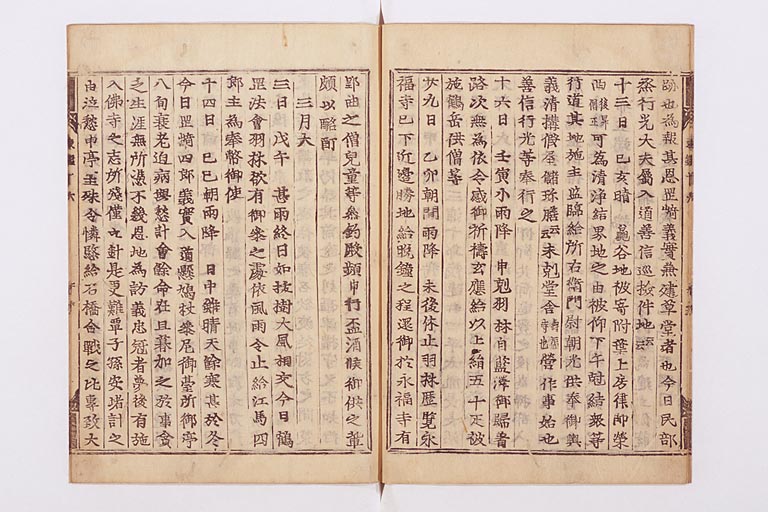 跡也為報其恩罡﨑義實兼建草堂者也今日民部
丞行光大夫属入道善信巡撿件地云云
十三日 己亥晴 龜谷地被寄附葉上房律師榮
西後号僧正可為清浄結界地之由被仰下午尅結衆等
行道其地施主監臨給所右衛門尉朝光供奉御輿
義清搆假屋儲珠膳云云未剋堂舎營作事始也
善信行光等奉行之
十六日 壬寅小雨降 申剋羽林自藍澤御歸着
路次無為依令感御祈禱玄應給以上絹五十疋被
施鶴岳供僧等
廿九日 乙卯朝間雨降 未後休止羽林歷覧永
福寺已下近邊勝地給晩鐘之程還御於永福寺有
郢曲之僧兒童等釣殿頻巾行盃酒候御供之輩
頗以酩酊
三月大
三日 戊午 甚雨終日如技樹大風相交今日鶴
罡法會羽林欲有御参之處依風雨令止給江馬四
郎主為奉幣御使
十四日 己巳朝雨降 日中雖晴天餘寒甚於冬
今日罡﨑四郎義實入道懸鳩杖参尼御臺所御亭
八旬衰老迫病與愁計會餘命在旦暮加之於事貧
之生涯無所憑不幾恩地為訪義忠冠者夢後有施
入佛寺之志所殘僅立針是更難覃子孫安堵計之
由泣愁申亭主殊令憐愍給石橋合戰之比專致大